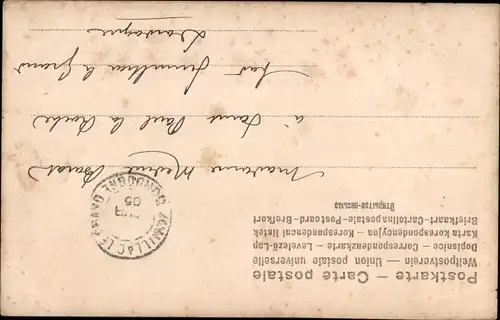 Postkarte — Carte postale
Weltpostverein — Union postale universelle
Dopisnice — Correspondenzkarte — Levelező-Lap
Karta korespondencyjna — Korespondenčni listek
Briefkaart-Cartolina postale-Postcard-Brefkort
Madame
à Saint Paul la Roche
par Jumilhac le Grand
Dordogne
JUMILLAC-LE-GRAND
DORDOGNE
05